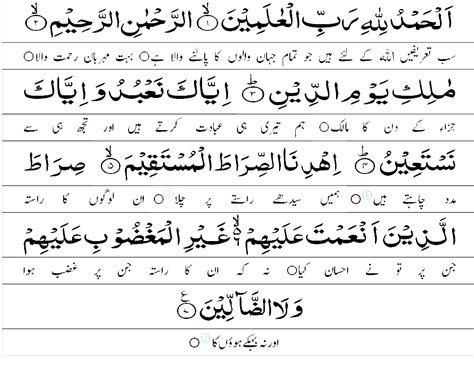 اَلْحَمْدُ لِلّٰهِ رَبِّ الْعٰلَمِيْنَ ۙ﴿۱﴾ الرَّحْمٰنِ الرَّحِيْمِ ۙ﴿۲﴾
سب تعریفیں اللہ کے لئے ہیں جو تمام جہان والوں کا پالنے والا ہے○ بہت مہربان رحمت والا○
مٰلِكِ يَوْمِ الدِّيْنِ ؕ﴿۳﴾ اِيَّاكَ نَعْبُدُ وَ اِيَّاكَ
جزاء کے دن کا مالک○ ہم تیری ہی عبادت کرتے ہیں اور تجھ ہی سے
نَسْتَعِيْنُ ؕ﴿۴﴾ اِهْدِنَا الصِّرَاطَ الْمُسْتَقِيْمَ ۙ﴿۵﴾ صِرَاطَ
مدد چاہتے ہیں○ ہمیں سیدھے راستے پر چلا○ ان لوگوں کا راستہ
الَّذِيْنَ اَنْعَمْتَ عَلَيْهِمْ ۙ۬﴿۶﴾ غَيْرِ الْمَغْضُوْبِ عَلَيْهِمْ
جن پر تو نے احسان کیا○ نہ کہ ان کا راستہ جن پر غضب ہوا
وَلَا الضَّآلِّيْنَ ۠﴿۷﴾
اور نہ بہکے ہوؤں کا○